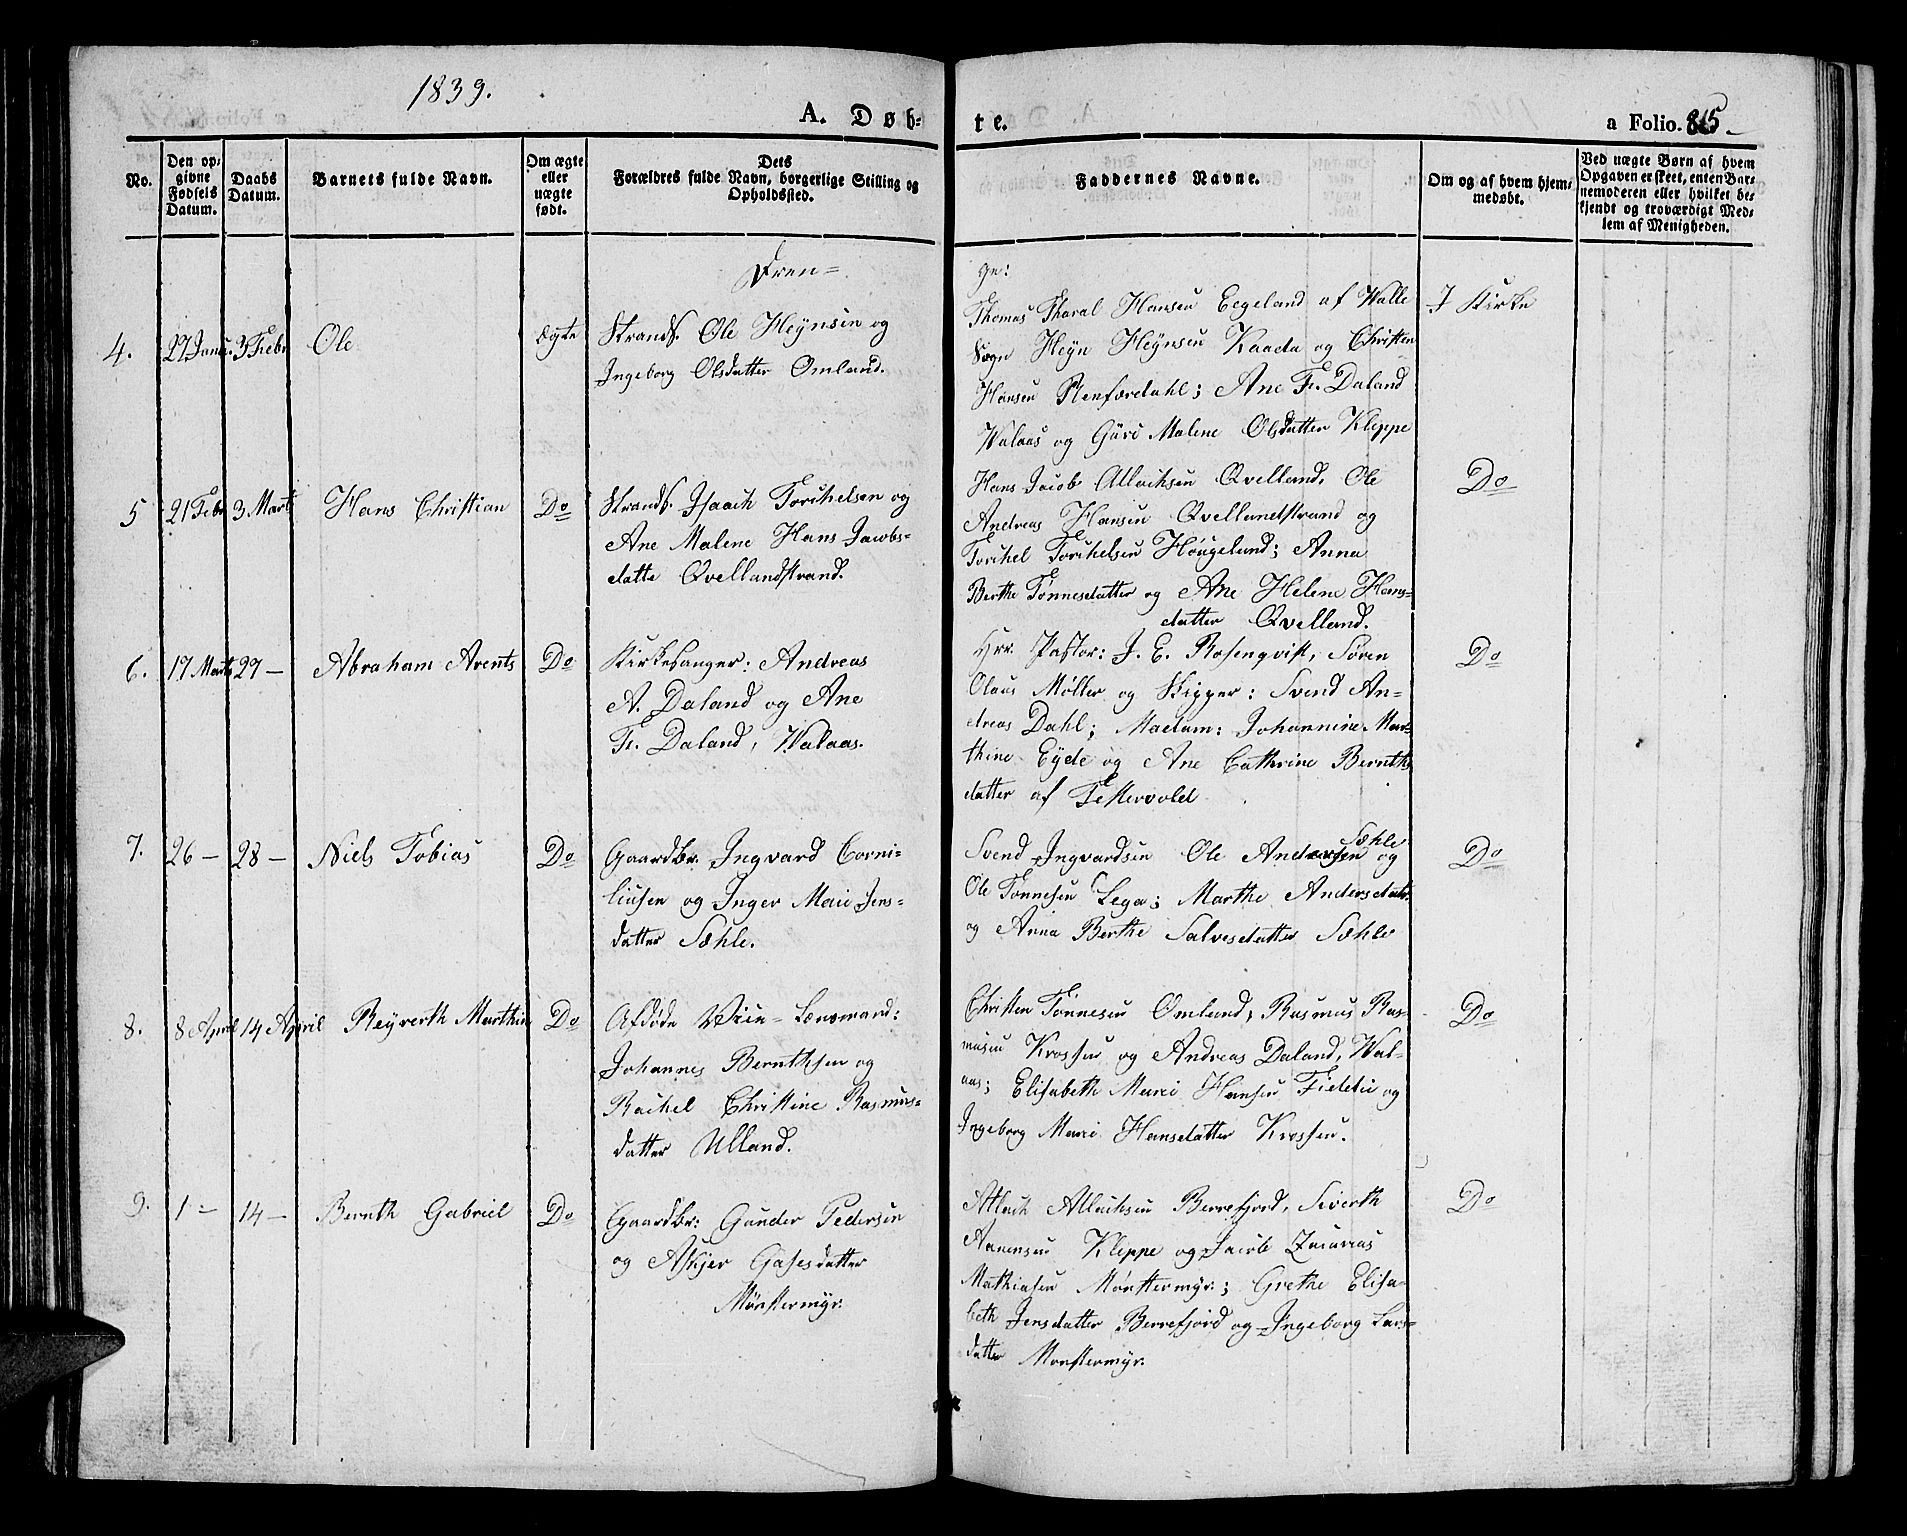 1839.
A. Døb-
te.
a Folio. 85
No.
Den op-
givne
Fødsels
Datum.
Daabs
Datum.
Barnets fulde Navn.
Om ægte
eller
uægte
født.
Dets
Forældres fulde Navn, borgerlige Stilling og
Opholdssted.
Faddernes Navne.
Om og af hvem hjem-
medøbt.
Ved uægte Børn af hvem
Opgaven er skeet, enten Bar-
nemoderen eller hvilket be-
kjendt og troværdigt Med-
lem af Menigheden.
Dren=
ge:
4.
27 Janu.
3 Febr
Ole
ægte
Strands. Ole Heÿnsen og
Ingeborg Olsdatter Omland.
Thomas Tharal Hansen Eegeland af Walle
Sogn Heÿn Heÿnsen Kaada og Christen
Hansen Renfæredahl; Ane Fr. Daland
Walaas og Güri Malene Olsdatter Kleppe
I Kirke
5
21 Febr
3 Mart
Hans Christian
Do
Strands. Isaach Torkelsen og
Ane Malene Hans Jacobs-
datte Qvellandstrand.
Hans Jacob Atlaksen Qvelland, Ole
Andreas Hansen Qvellandstrand og
Torkel Torkelsen Høugeland; Anna
Berthe Tønnesdatter og Ane Helene Hans-
datter Qvelland.
Do
6.
17 Marts
27 —
Abraham Arents
Do
Kirkesanger: Andreas
A. Daland og Ane
Fr. Daland, Walaas.
Hrr. Pastor: J. E. Rosenqvist, Søren
Olaus Møller og Skipper: Svend An-
dreas Dahl; Madam: Johannine Mar-
thine Eÿde og Ane Cathrine Bernths
datter af Fekkervold
Do
7.
26 —
28 —
Niels Tobias
Do
Gaardbr. Ingvard Corni-
liusen og Inger Marie Jens-
datter Sæhle.
Sæhle
Svend Ingvardsen Ole Andersen og
Ole Tønnesen Lega; Marthe Andersdatt.
og Anna Berthe Salvesdatter Sæhle
Do
8.
8 April
14 April
Reÿerth Marthin
Do
Afdøde Lensmand:
Johannes Bernthsen og
Rachel Christine Rasmus-
datter Ulland.
Christen Tønnesen Omland, Rasmus Ras-
musen Krossen og Andreas Daland, Wal-
aas; Elisabeth Marie Hansen Fidetie og
Ingeborg Marie Hansdatter Krossen.
Do
9.
1 —
14 —
Bernth Gabriel
Do
Gaardbr: Gunder Pedersen
og Askjer Gasesdatter
Mønstermÿr.
Atlach Atlachsen Berrefjord, Siverth
Aanensen Kleppe og Jacob Zacarias
Mathiasen Mønstermÿr.; Grethe Elisa-
beth Jensdatter Berrefjord og Ingeborg Lars-
datter Mønstermÿr.
Do